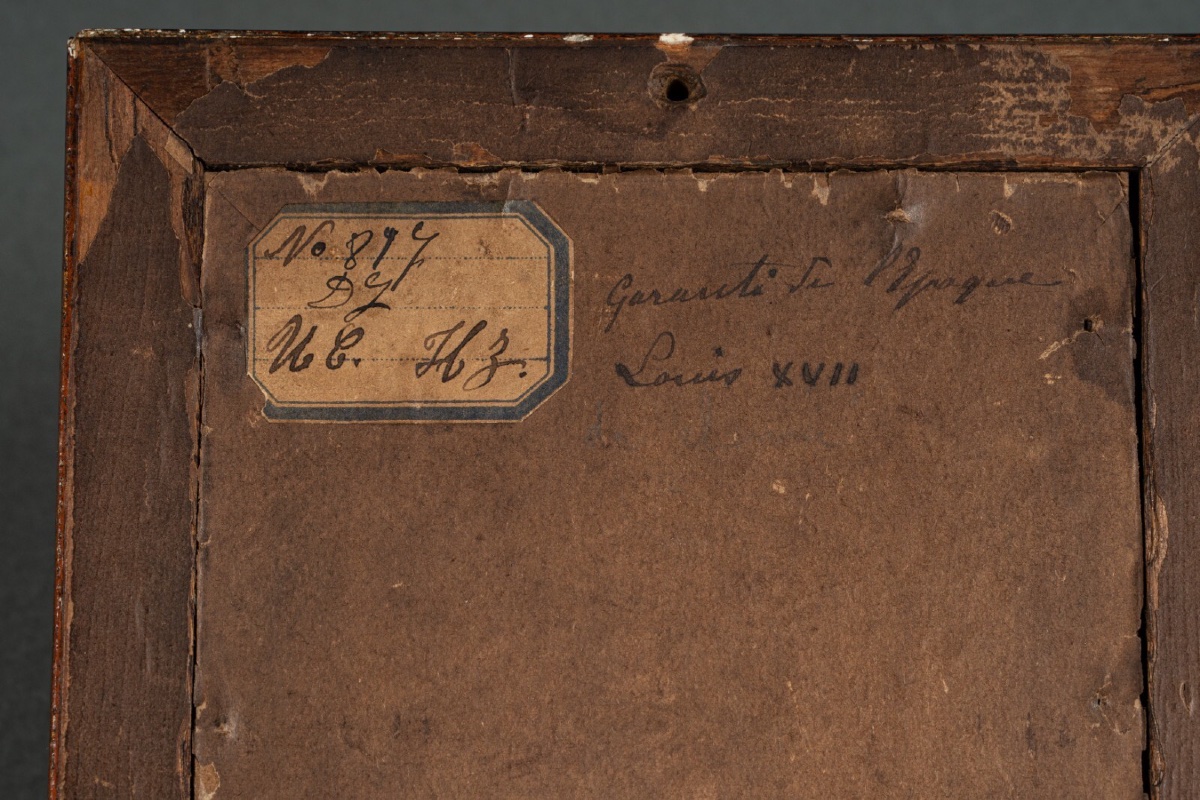 No 897
DJ
UC. Hz.
Garanti de l'Epoque
Louis XVII